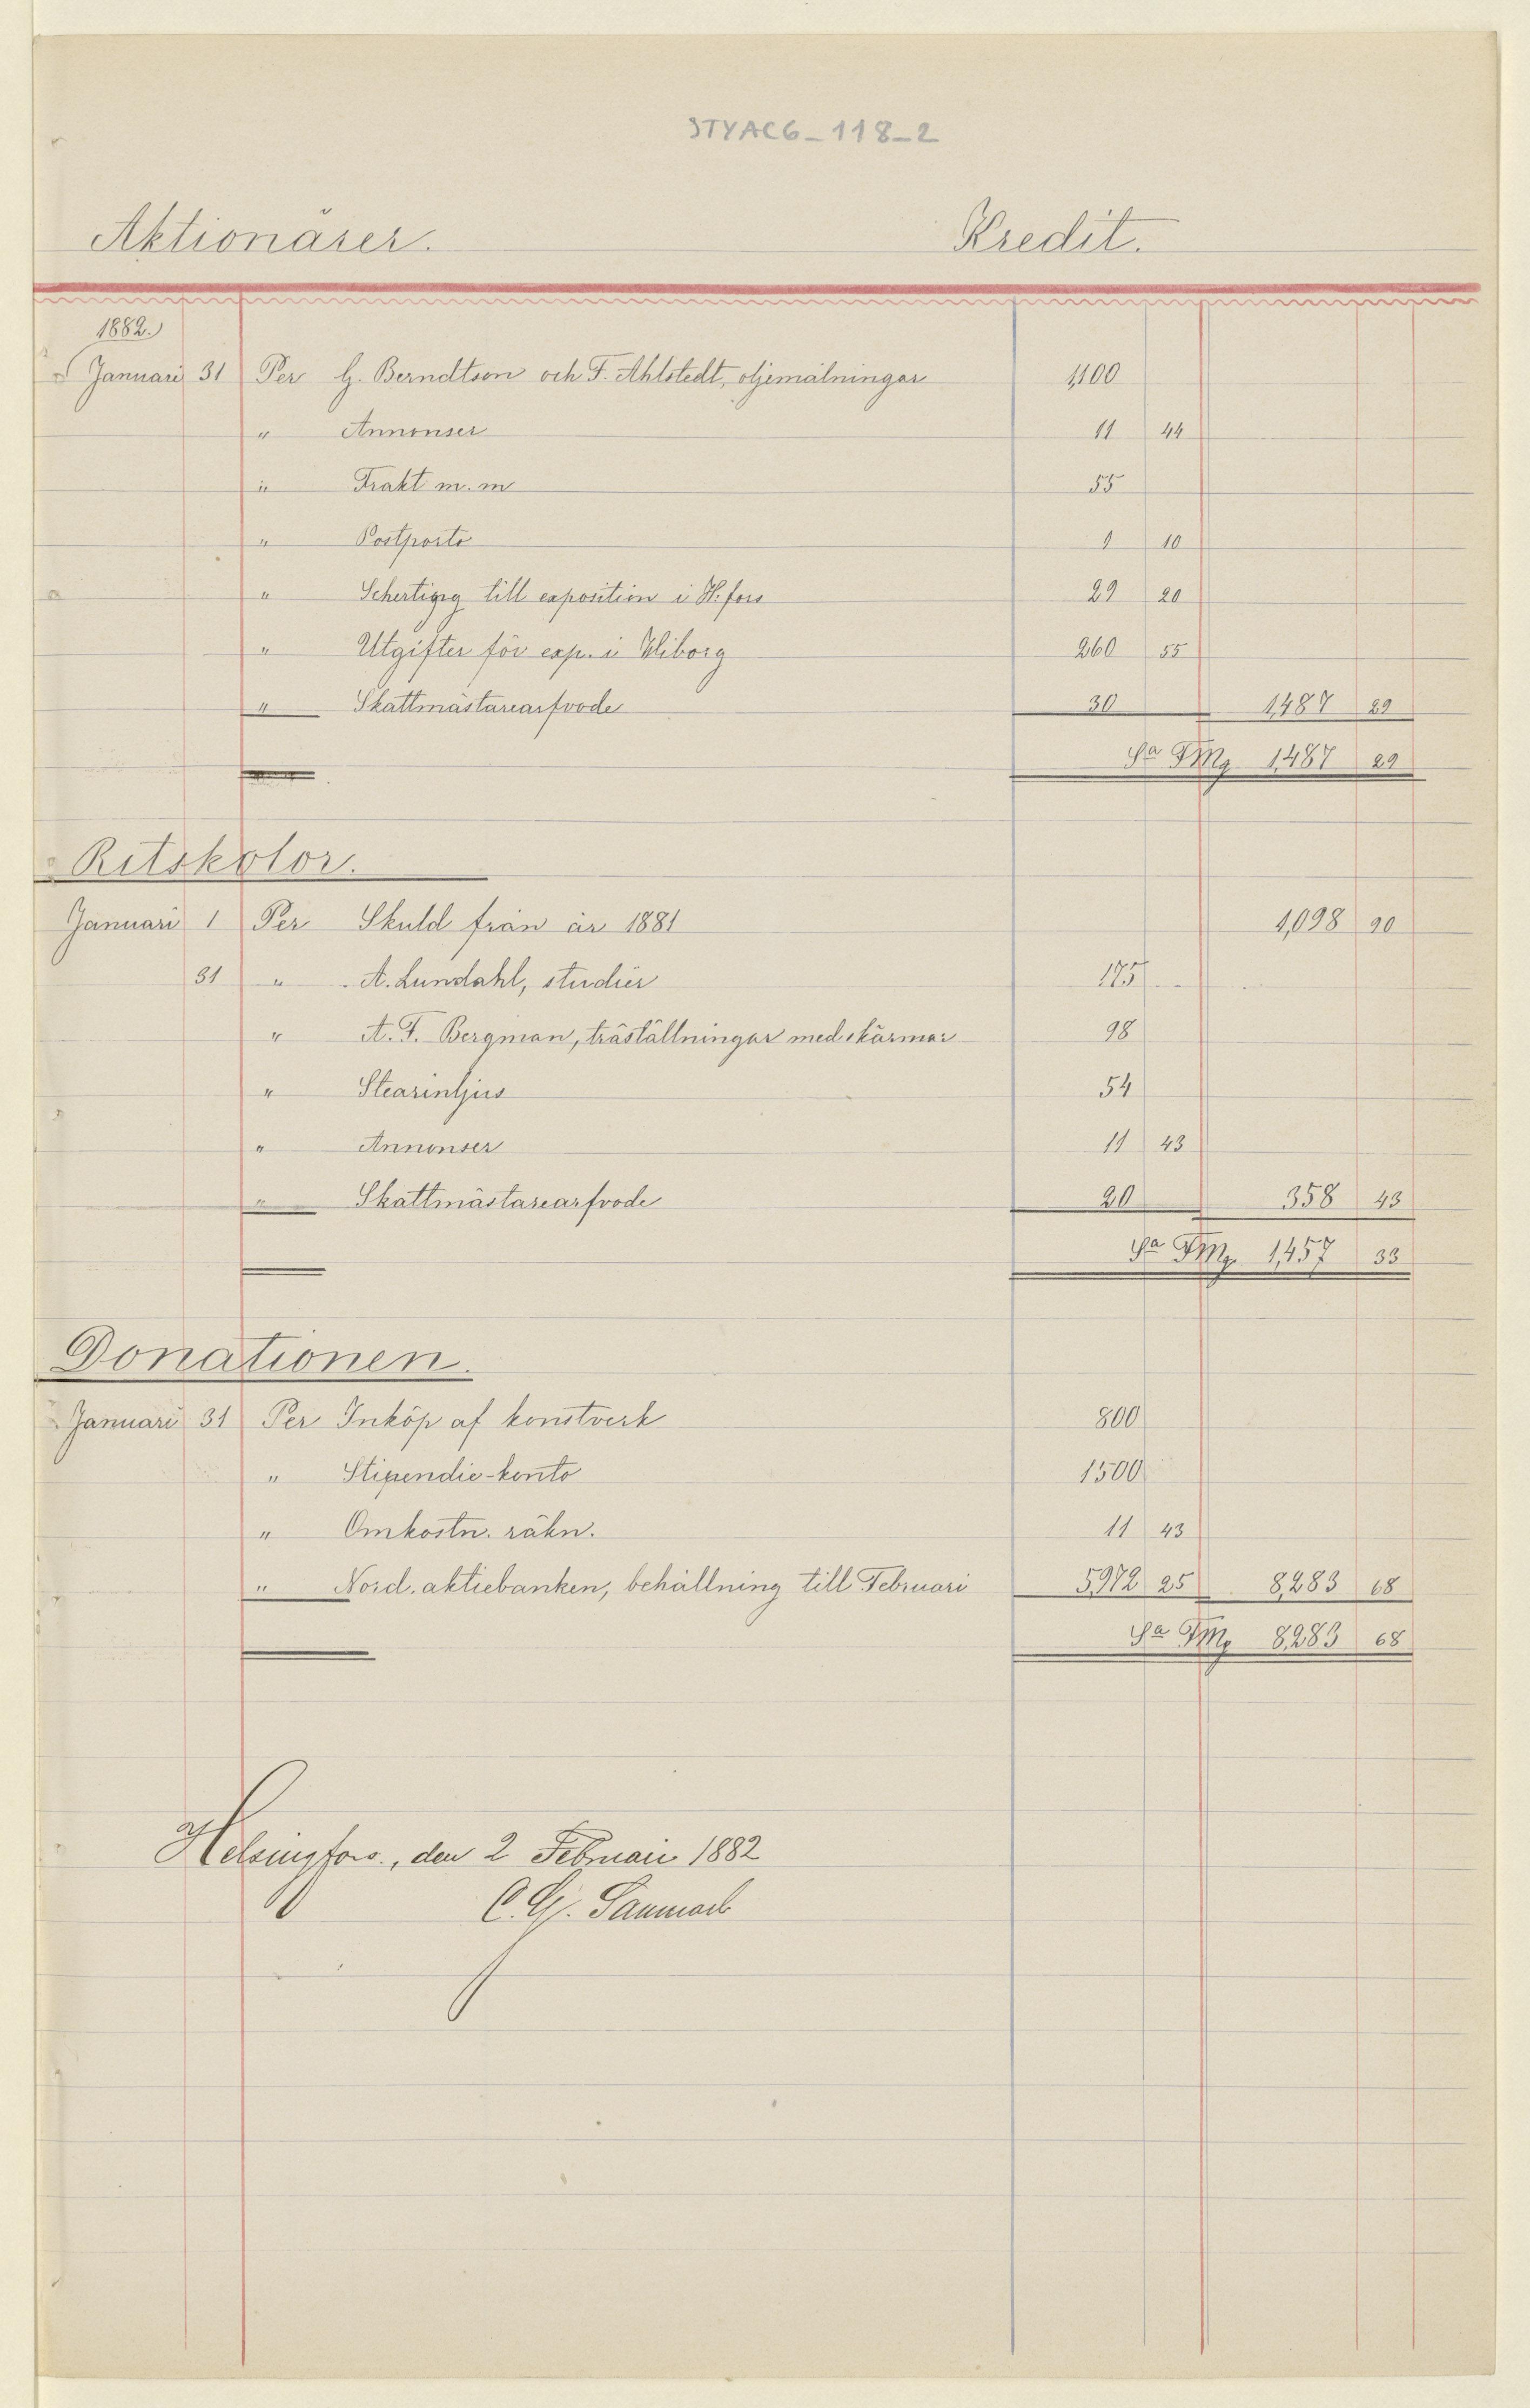 STYAC6_118_2
Aktionärer. Kredit.
1882.
Januari 31 Per G. Berndtson och F. Ahlstedt, oljemålningar 1,100
" Annonser 11 44
" Frakt m. m 55
" Postporto 1 10
" till exposition i H.fors 29 20
" Utgifter för exp. i Wiborg 260 55
" Skattmästarearfvode 30 1,487 29
Sa Fmg 1,487 29
Ritskolor.
Januari 1 Per Skuld från år 1881 1,098 90
31 " A. Lundahl, studier 175
" A. F. Bergman, träställningar med skärmar 98
" Stearinljus 54
" Annonser 11 43
" Skattmästarearfvode 20 358 43
Sa Fmg. 1,457 33
Donationen.
Januari 31 Per Inköp af konstverk 800
" Stipendie-konto 1500
" Omkostn. räkn. 11 43
" Nord. aktiebanken, behållning till Februari 5,972 25 8,283 68
Sa Fmg 8,283 68
Helsingfors, den 2 Februari 1882
C. Gj. Sanmark